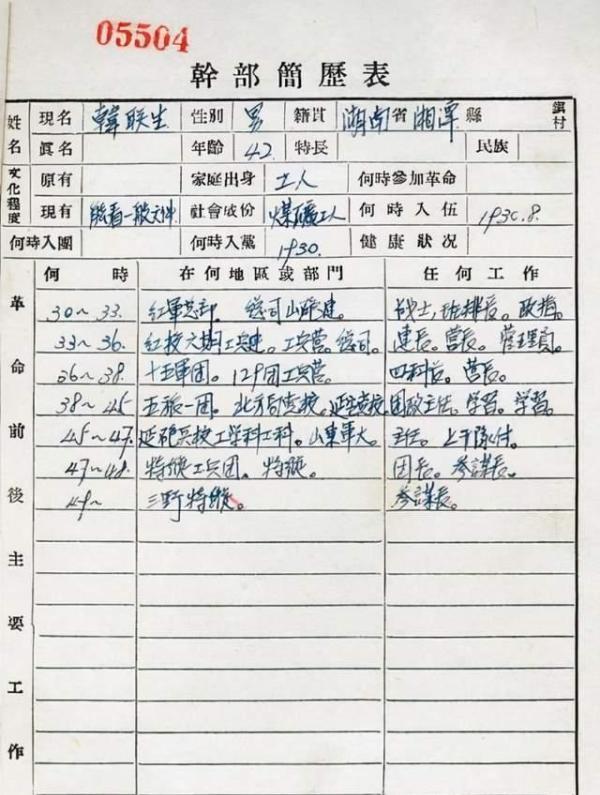 05504
幹部簡歷表
姓名 現名 韓联生 性別 男 籍貫 湖南省湘潭縣 鎮村
眞名 年齡 42 特長 民族
文化程度 原有 家庭出身 工人 何時參加革命
現有 能看一般文件 社會成份 煤礦工人 何時入伍 1930.8.
何時入團 何時入黨 1930. 健康狀况
革命前後主要工作 何時 在何地區或部門 任何工作
30~33. 红軍总部 战士,班排長。政指。
33~36. 红校六期工兵連。工兵营。总司 連長。营長。管理員。
36~38. 十五軍团。129团工兵营。 四科長。营長。
38~45 五旅一团。北方局党校。延安党校 团政主任。学習。学習。
45~47. 延砲兵校工学科工科。山東軍大。 主任。上干隊
47~48. 特縱工兵团。特縱。 团長。参謀長。
49~ 三野特縱。 参謀長。